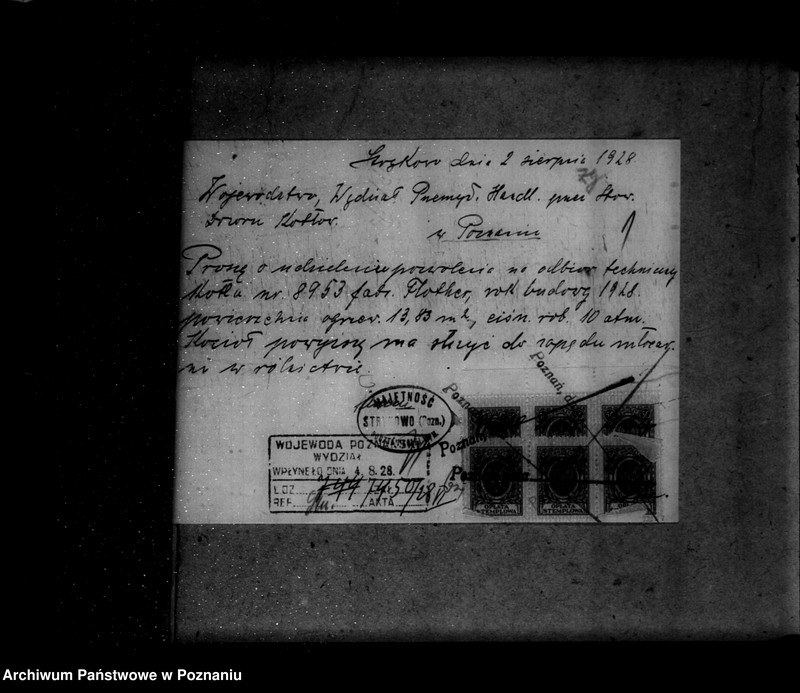 dnia 2 sierpnia 1928
Województwo, Wydział Przemysł. Handl. przez Stow.
Dozoru Kotłów.
w Poznaniu
Proszę o udzielenie pozwolenia na odbiór techniczny
Kotła nr. 8953 fabr. Flother, rok budowy 1928.
powierzchnia ogrzew. 13,83 m², ciśn. rob. 10 atm.
Kocioł powyższy ma służyć do zapędu młocar-
ni w rolnictwie.
Poznań, d
MAJĘTNOŚĆ
(Pozn.)
WOJEWODA POZNAŃSKI
WYDZIAŁ
WPŁYNĘŁO DNIA 4. 8. 28.
L.DZ.
REF. AKTA
OPŁATA STEMPLOWA
OPŁATA STEMPLOWA
Archiwum Państwowe w Poznaniu